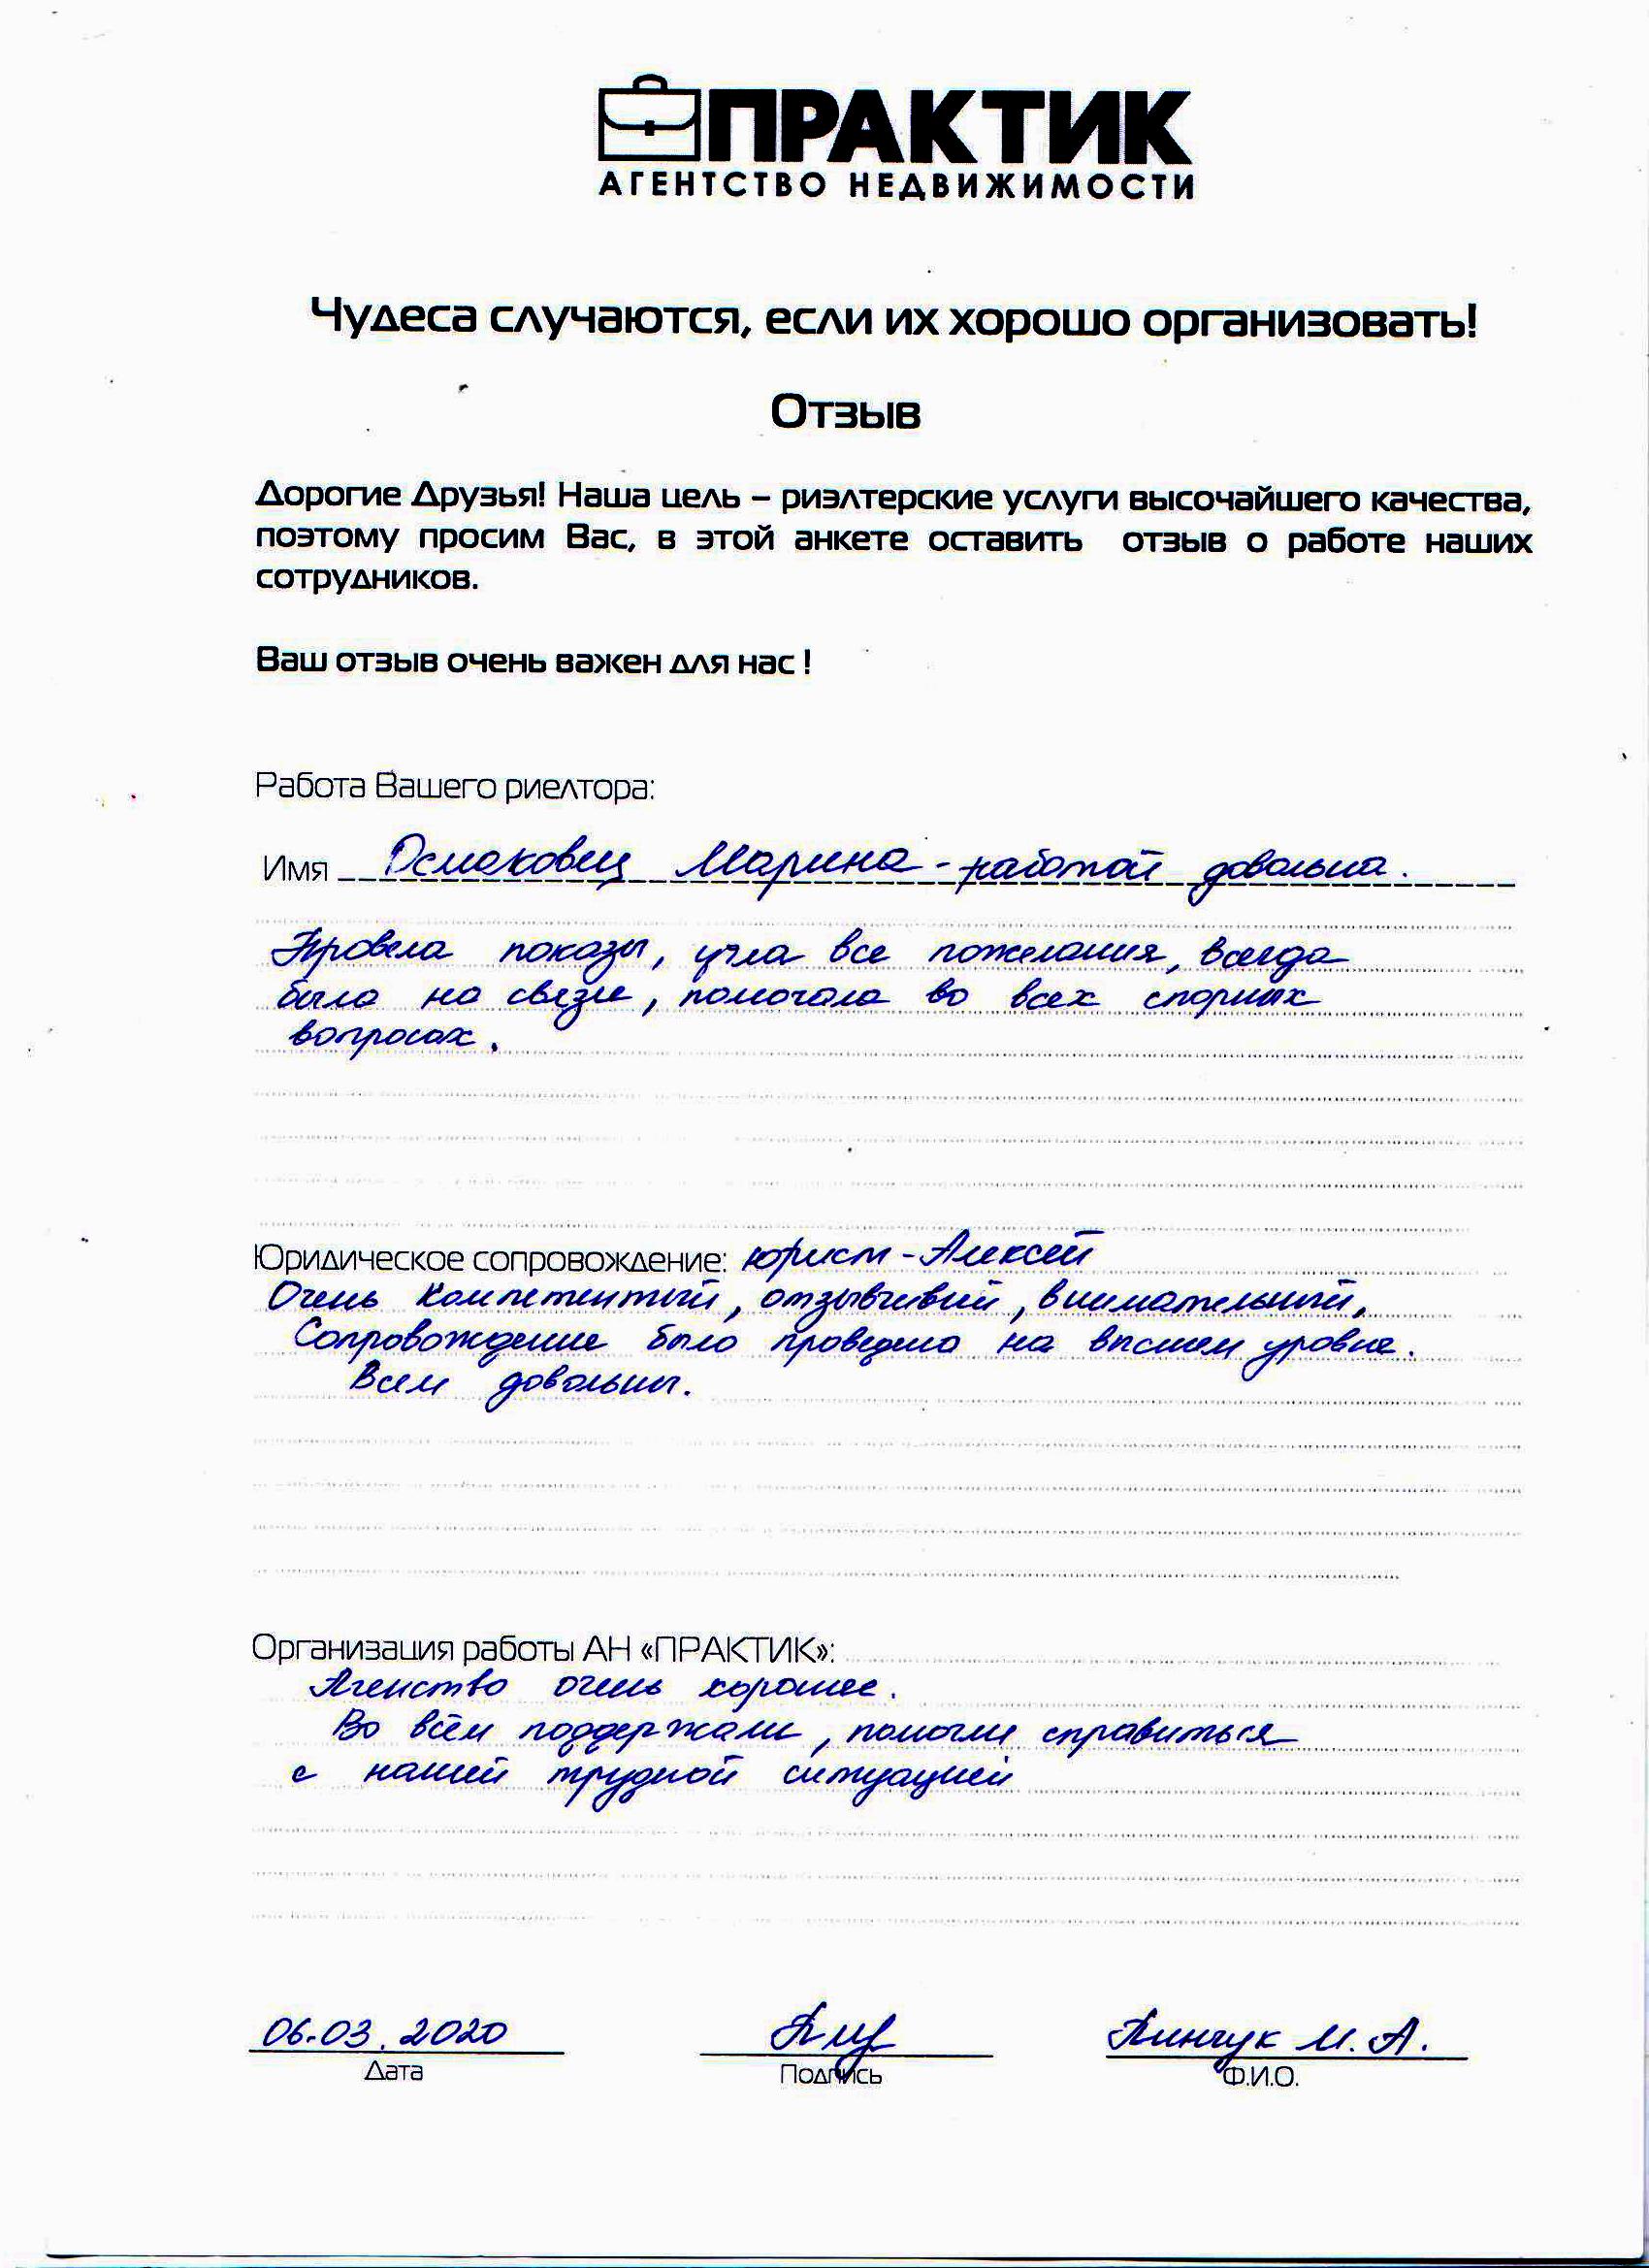 ПРАКТИК
АГЕНТСТВО НЕДВИЖИМОСТИ
Чудеса случаются, если их хорошо организовать!
Отзыв
Дорогие Друзья! Наша цель – риэлтерские услуги высочайшего качества,
поэтому просим Вас, в этой анкете оставить отзыв о работе наших
сотрудников.
Ваш отзыв очень важен для нас !
Работа Вашего риелтора:
Имя Осмаковец Марина - работой довольна.
Провела показы, учла все пожелания, всегда
была на связи, помогала во всех спорных
вопросах.
Юридическое сопровождение: юрист - Алексей
Очень компетентный, отзывчивый, внимательный,
Сопровождение было проведено на высшем уровне.
Всем довольны.
Организация работы АН «ПРАКТИК»:
Агенство очень хорошее.
Во всём поддержали, помогли справиться
с нашей трудной ситуацией
06.03.2020 Пинчук М. А.
Дата Подпись Ф.И.О.